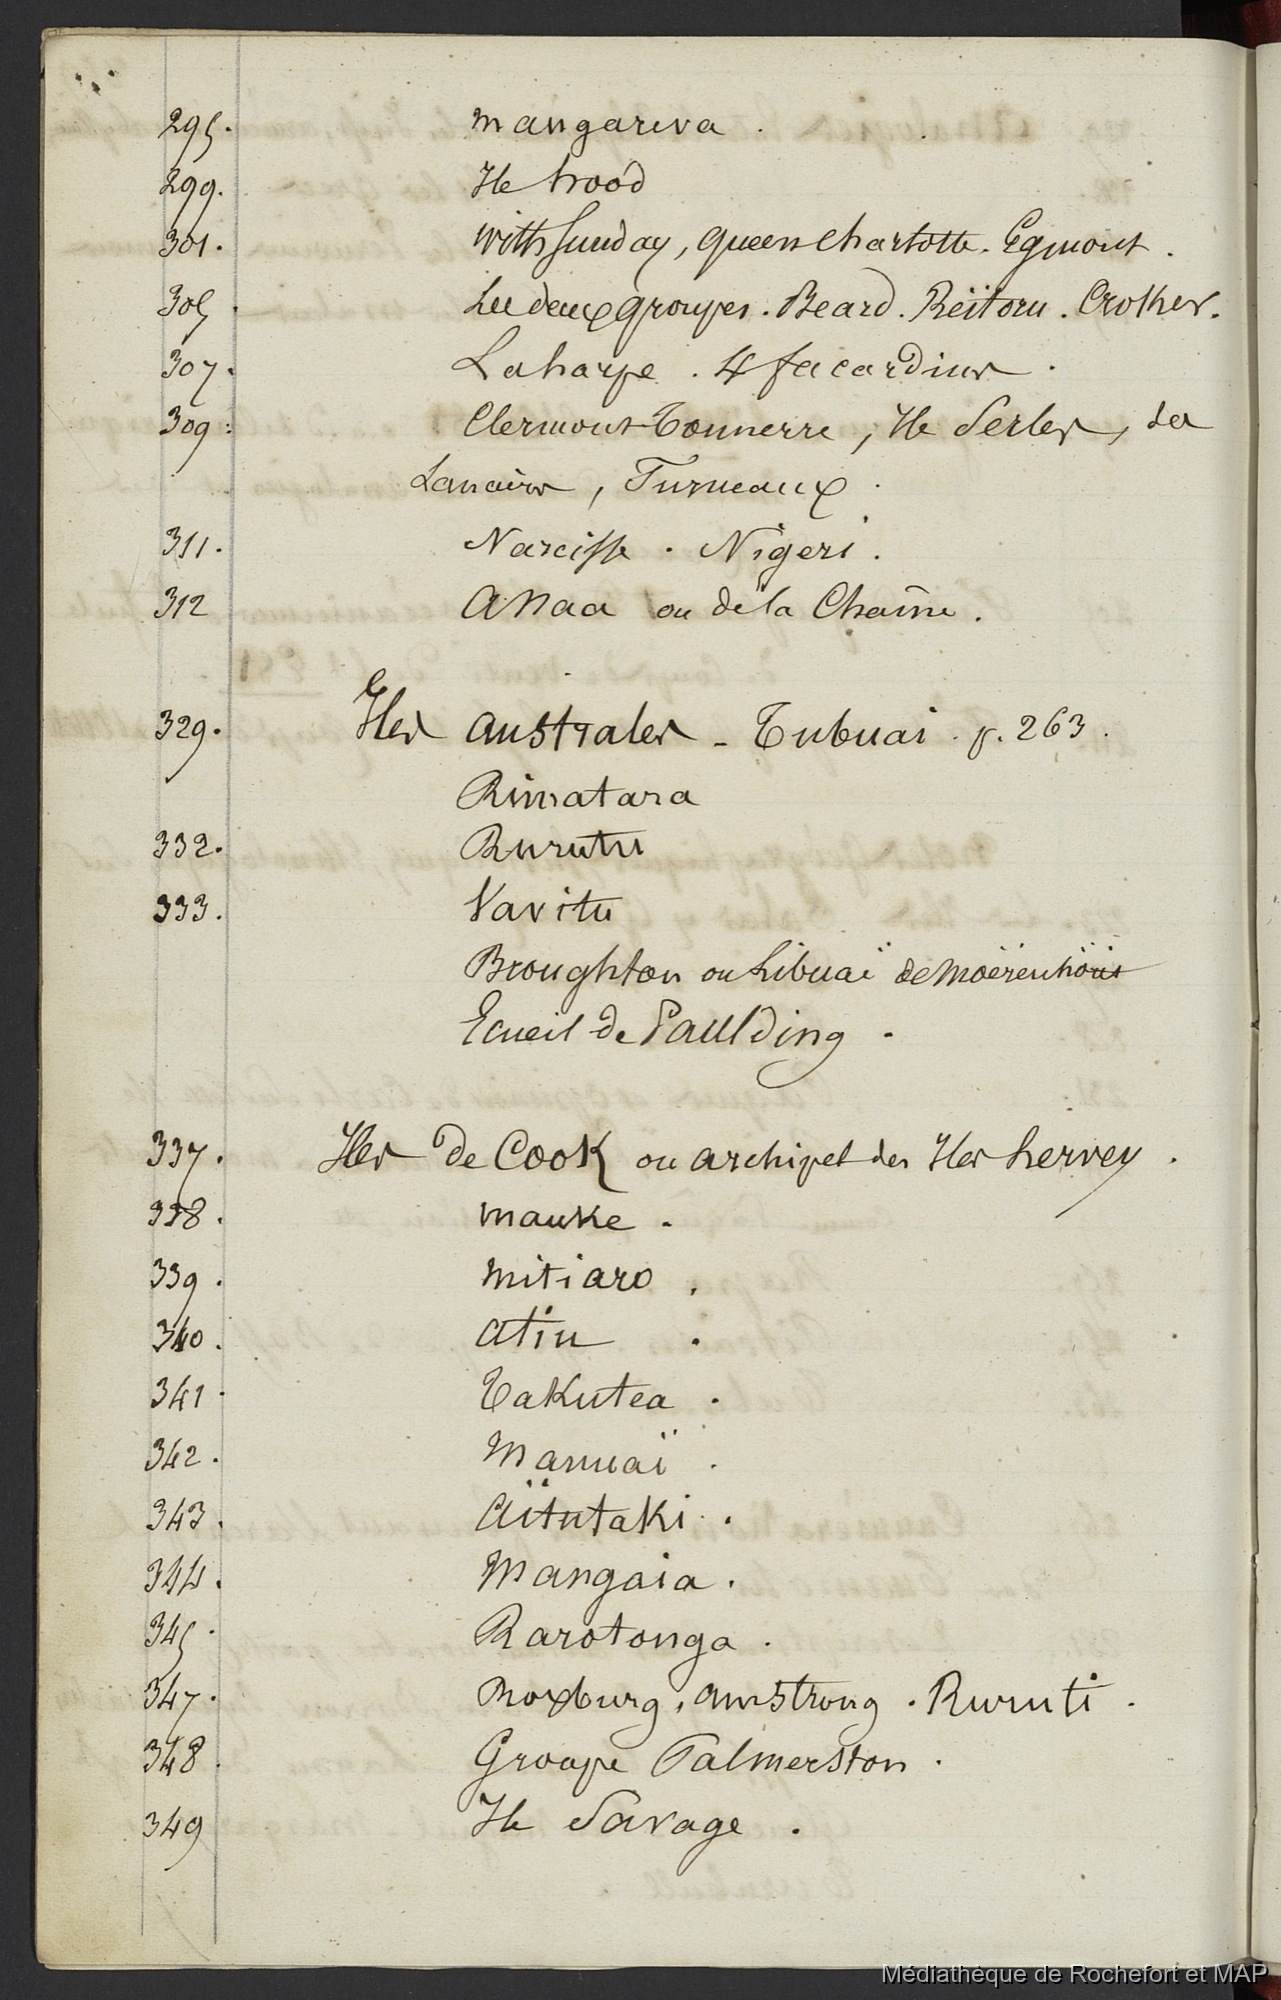 295. Mangareva.
299. Ile hood
301. Withsunday, queen charlotte. Egmont.
305. Les deux groupes. Beard. Réitoru. Croker.
307. Laharpe. 4 facardins.
309. Clermont-Tonnerre, Ile Serles, des
Lanciers, Furneaux.
311. Narcisse. Nigeri.
312 Anaa ou de la Chaîne.
329. Iles australes - Tubuai. p. 263.
Rimatara
332. Rurutu
333. Vavitu
Broughton ou hibuaï de Moërenhoüt
Ecueil de Paulding.
337. Iles de Cook ou archipel des Iles hervey.
338. Mauke.
339. Mitiaro.
340. Atiu.
341. Takutea.
342. Manuaï.
343. Aïtutaki.
344. Mangaia.
345. Rarotonga.
347. Roxburg. Amstrong. Ruruti.
348. Groupe Palmerston.
349 Ile Savage.
Médiathèque de Rochefort et MAP